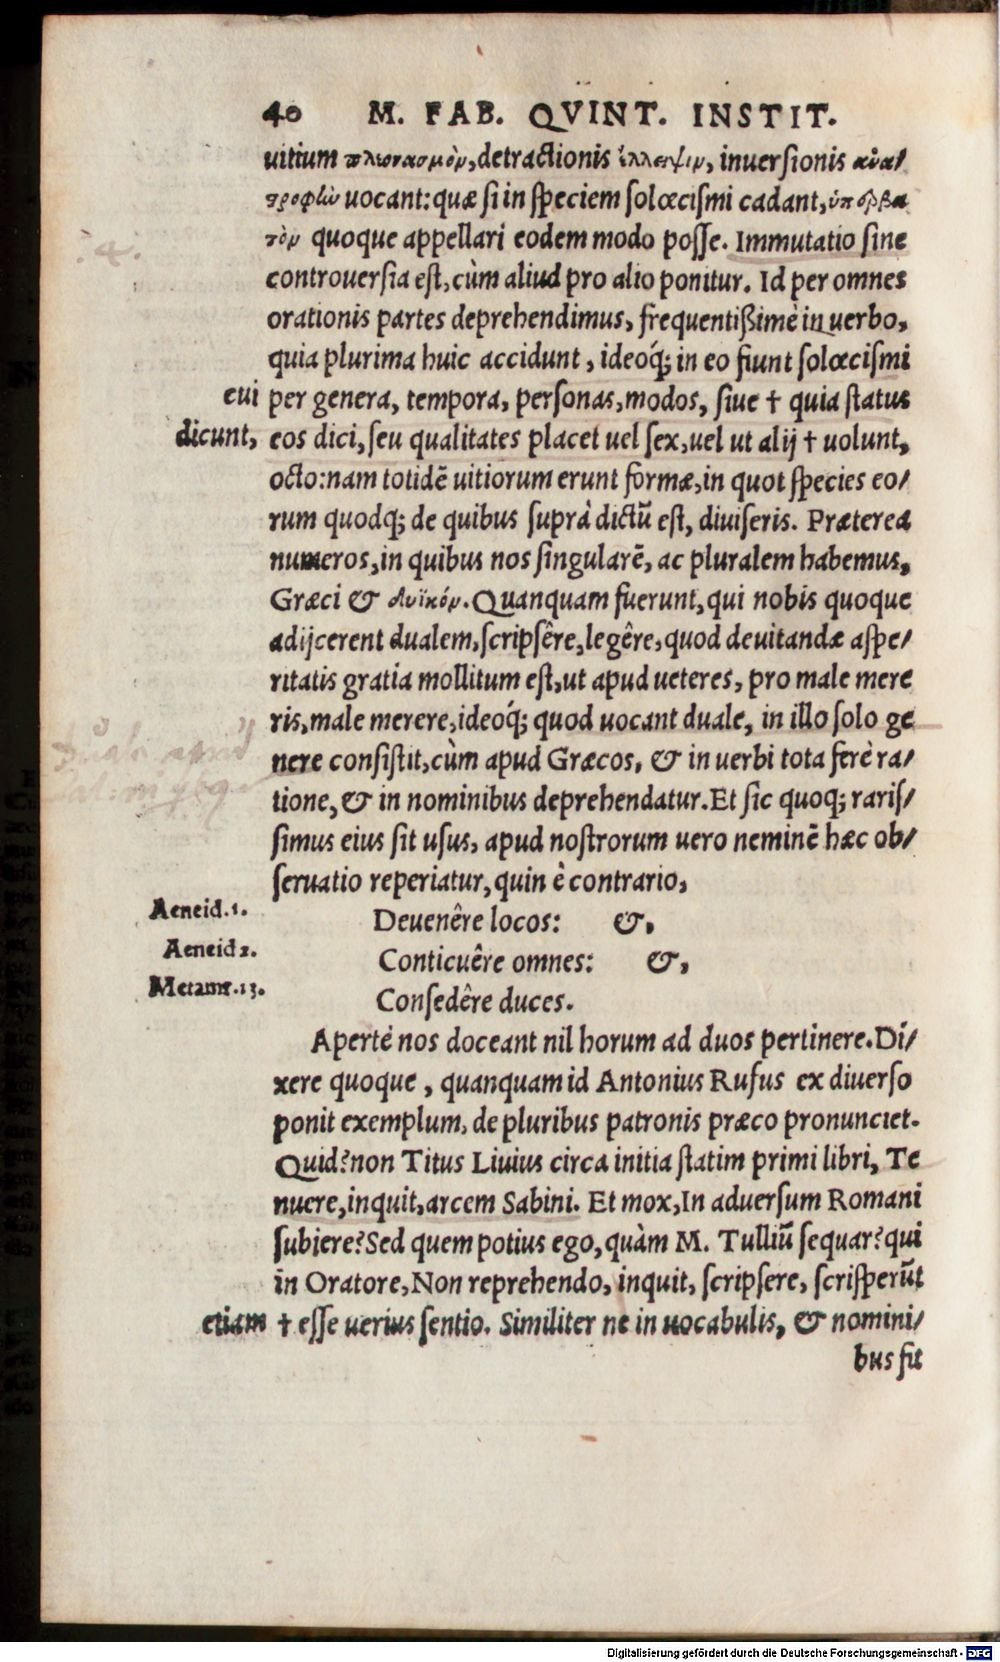 40 M. FAB. QVINT. INSTIT.
uitium πλεονασμὸν, detractionis ἔλλειψιν, inuersionis ἀνα/
στροφὴν uocant: quæ si in speciem solœcismi cadant, ὑπερβα
τὸν quoque appellari eodem modo posse. Immutatio sine
controuersia est, cùm aliud pro alio ponitur. Id per omnes
orationis partes deprehendimus, frequentißimè in uerbo,
quia plurima huic accidunt, ideóq; in eo fiunt solœcismi
cui per genera, tempora, personas, modos, siue † quia status
dicunt, eos dici, seu qualitates placet uel sex, uel ut alij † uolunt,
octo: nam totidē uitiorum erunt formæ, in quot species eo/
rum quodq; de quibus suprà dictū est, diuiseris. Præterea
numeros, in quibus nos singularē, ac pluralem habemus,
Græci & δυϊκόν. Quanquam fuerunt, qui nobis quoque
adijcerent dualem, scripsêre, legêre, quod deuitandæ aspe/
ritatis gratia mollitum est, ut apud ueteres, pro male mere
ris, male merere, ideóq; quod uocant duale, in illo solo ge
nere consistit, cùm apud Græcos, & in uerbi tota ferè ra/
tione, & in nominibus deprehendatur. Et sic quoq; raris/
simus eius sit usus, apud nostrorum uero neminē hæc ob/
seruatio reperiatur, quin è contrario,
Aeneid. 1. Deuenêre locos: &,
Aeneid 2. Conticuêre omnes: &,
Metamr. 13. Consedêre duces.
Apertè nos doceant nil horum ad duos pertinere. Di/
xere quoque, quanquam id Antonius Rufus ex diuerso
ponit exemplum, de pluribus patronis præco pronunciet.
Quid? non Titus Liuius circa initia statim primi libri, Te
nuere, inquit, arcem Sabini. Et mox, In aduersum Romani
subiere? Sed quem potius ego, quàm M. Tulliū sequar? qui
in Oratore, Non reprehendo, inquit, scripsere, scripserūt
etiam † esse uerius sentio. Similiter ne in uocabulis, & nomini/
bus fit
Digitalisierung gefördert durch die Deutsche Forschungsgemeinschaft - DFG